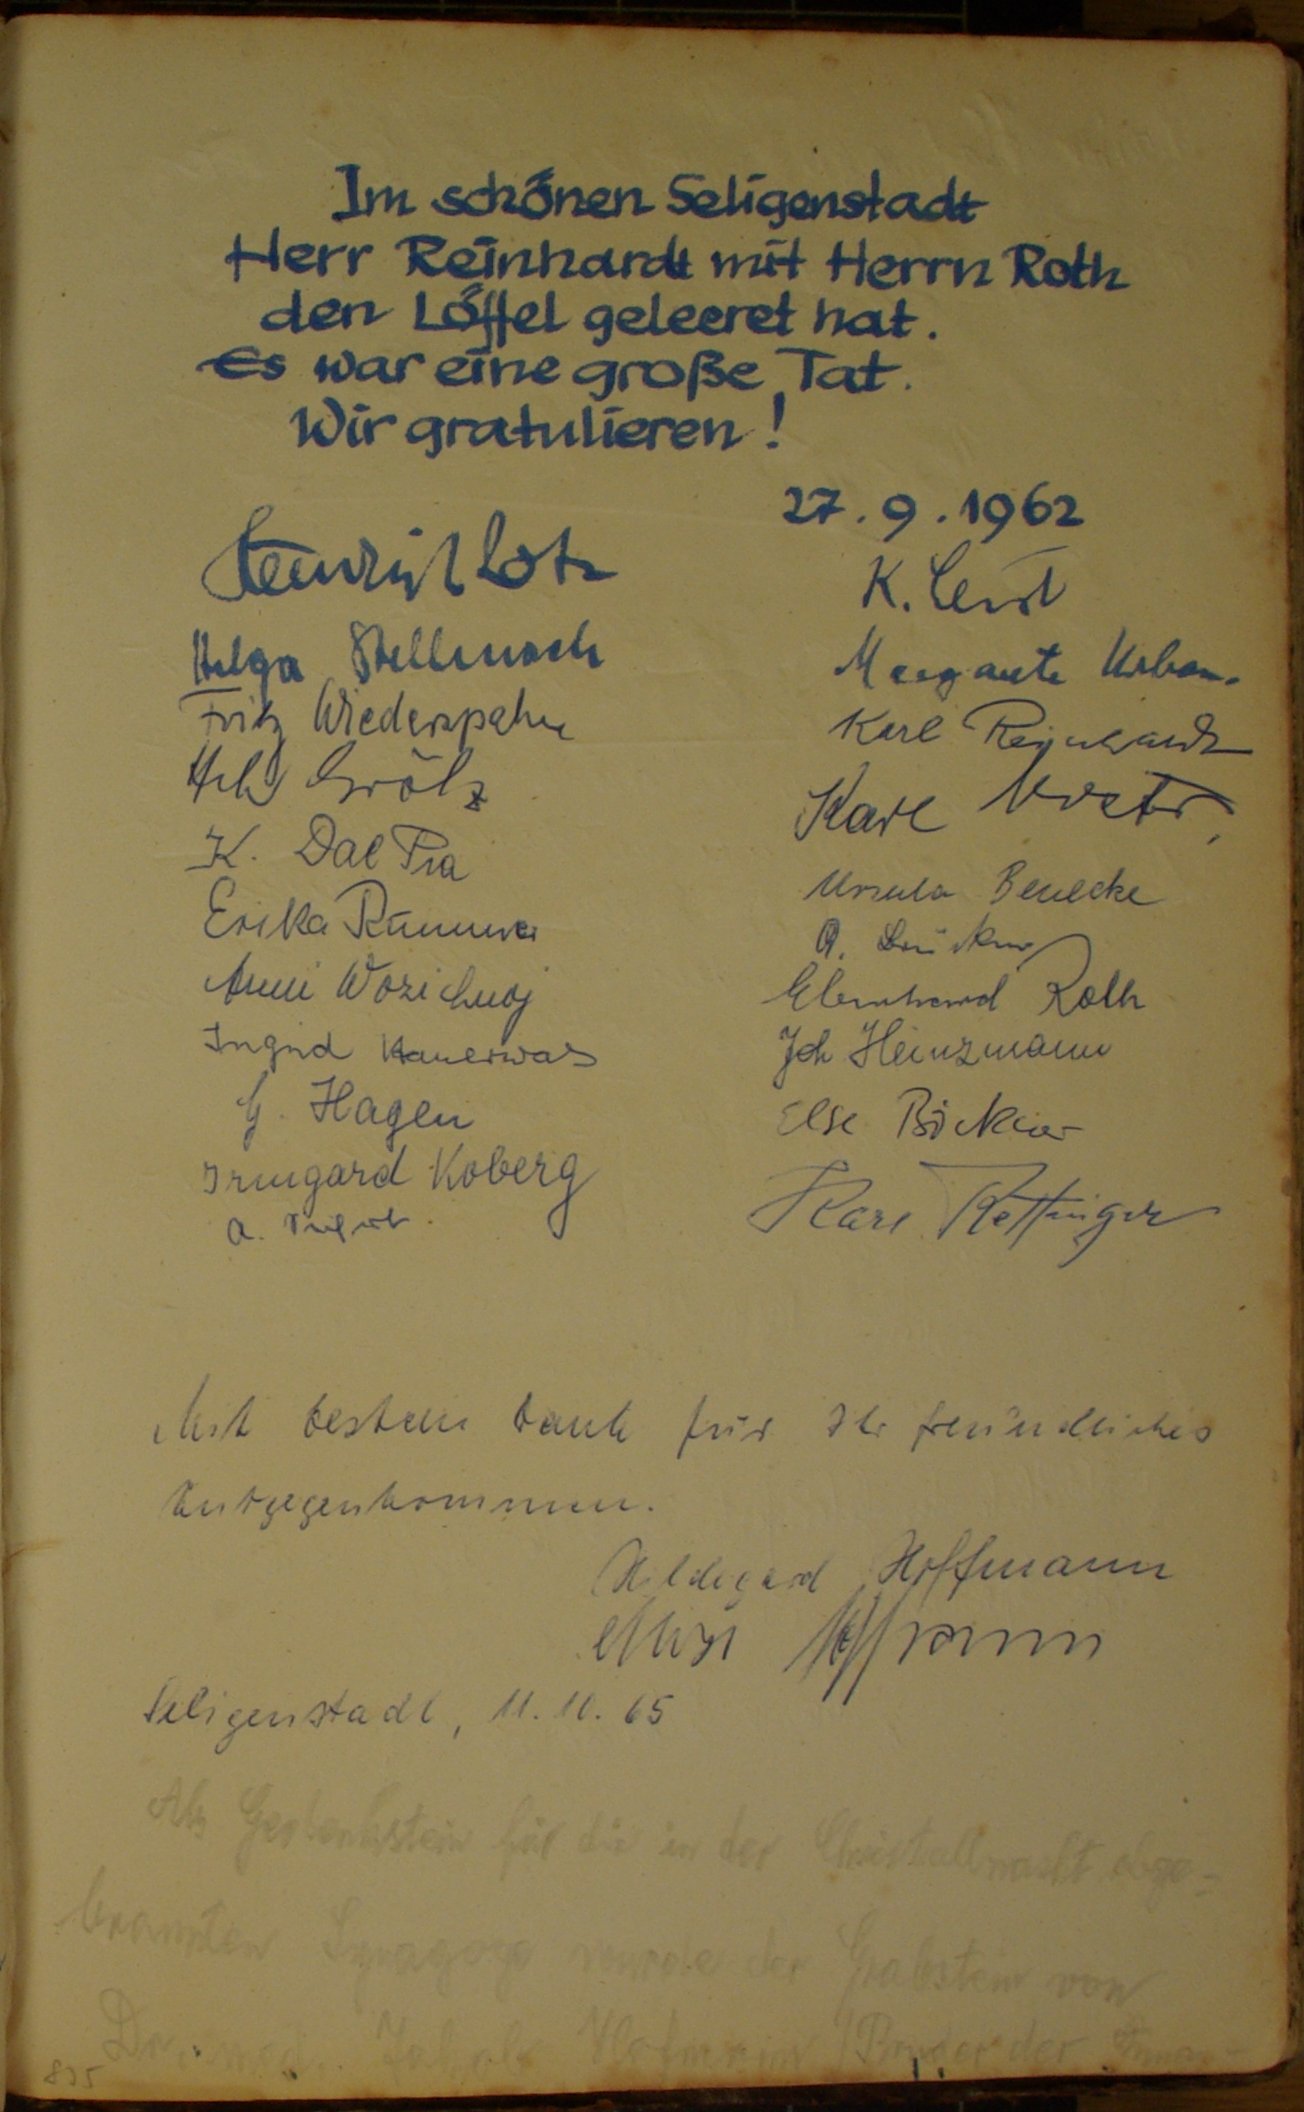 Im schönen Seligenstadt
Herr Reinhardt mit Herrn Roth
den Löffel geleeret hat.
Es war eine große Tat.
Wir gratulieren!
27.9.1962
Heinrich Lotz
K.
Helga Stellmach
Margarete Urban
Fritz Wiederspahn
Karl Reinhardt
Grölz
Karl
K. Dal Pra
Ursula Benecke
Erika
A. Brückner
Anni
Eberhard Roth
Ingrid
Joh Heinzmann
G. Hagen
Else
Irmgard Koberg
Karl Rettinger
A.
Mit bestem Dank für Ihr freundliches
Entgegenkommen.
Hildegard Hoffmann
Hoffmann
Seligenstadt, 11.11.65
Als Gedenkstein für die in der Christallnacht abge=
brannten Synagoge wurde der Grabstein von
Dr. med. Hofmann (Bruder der
835